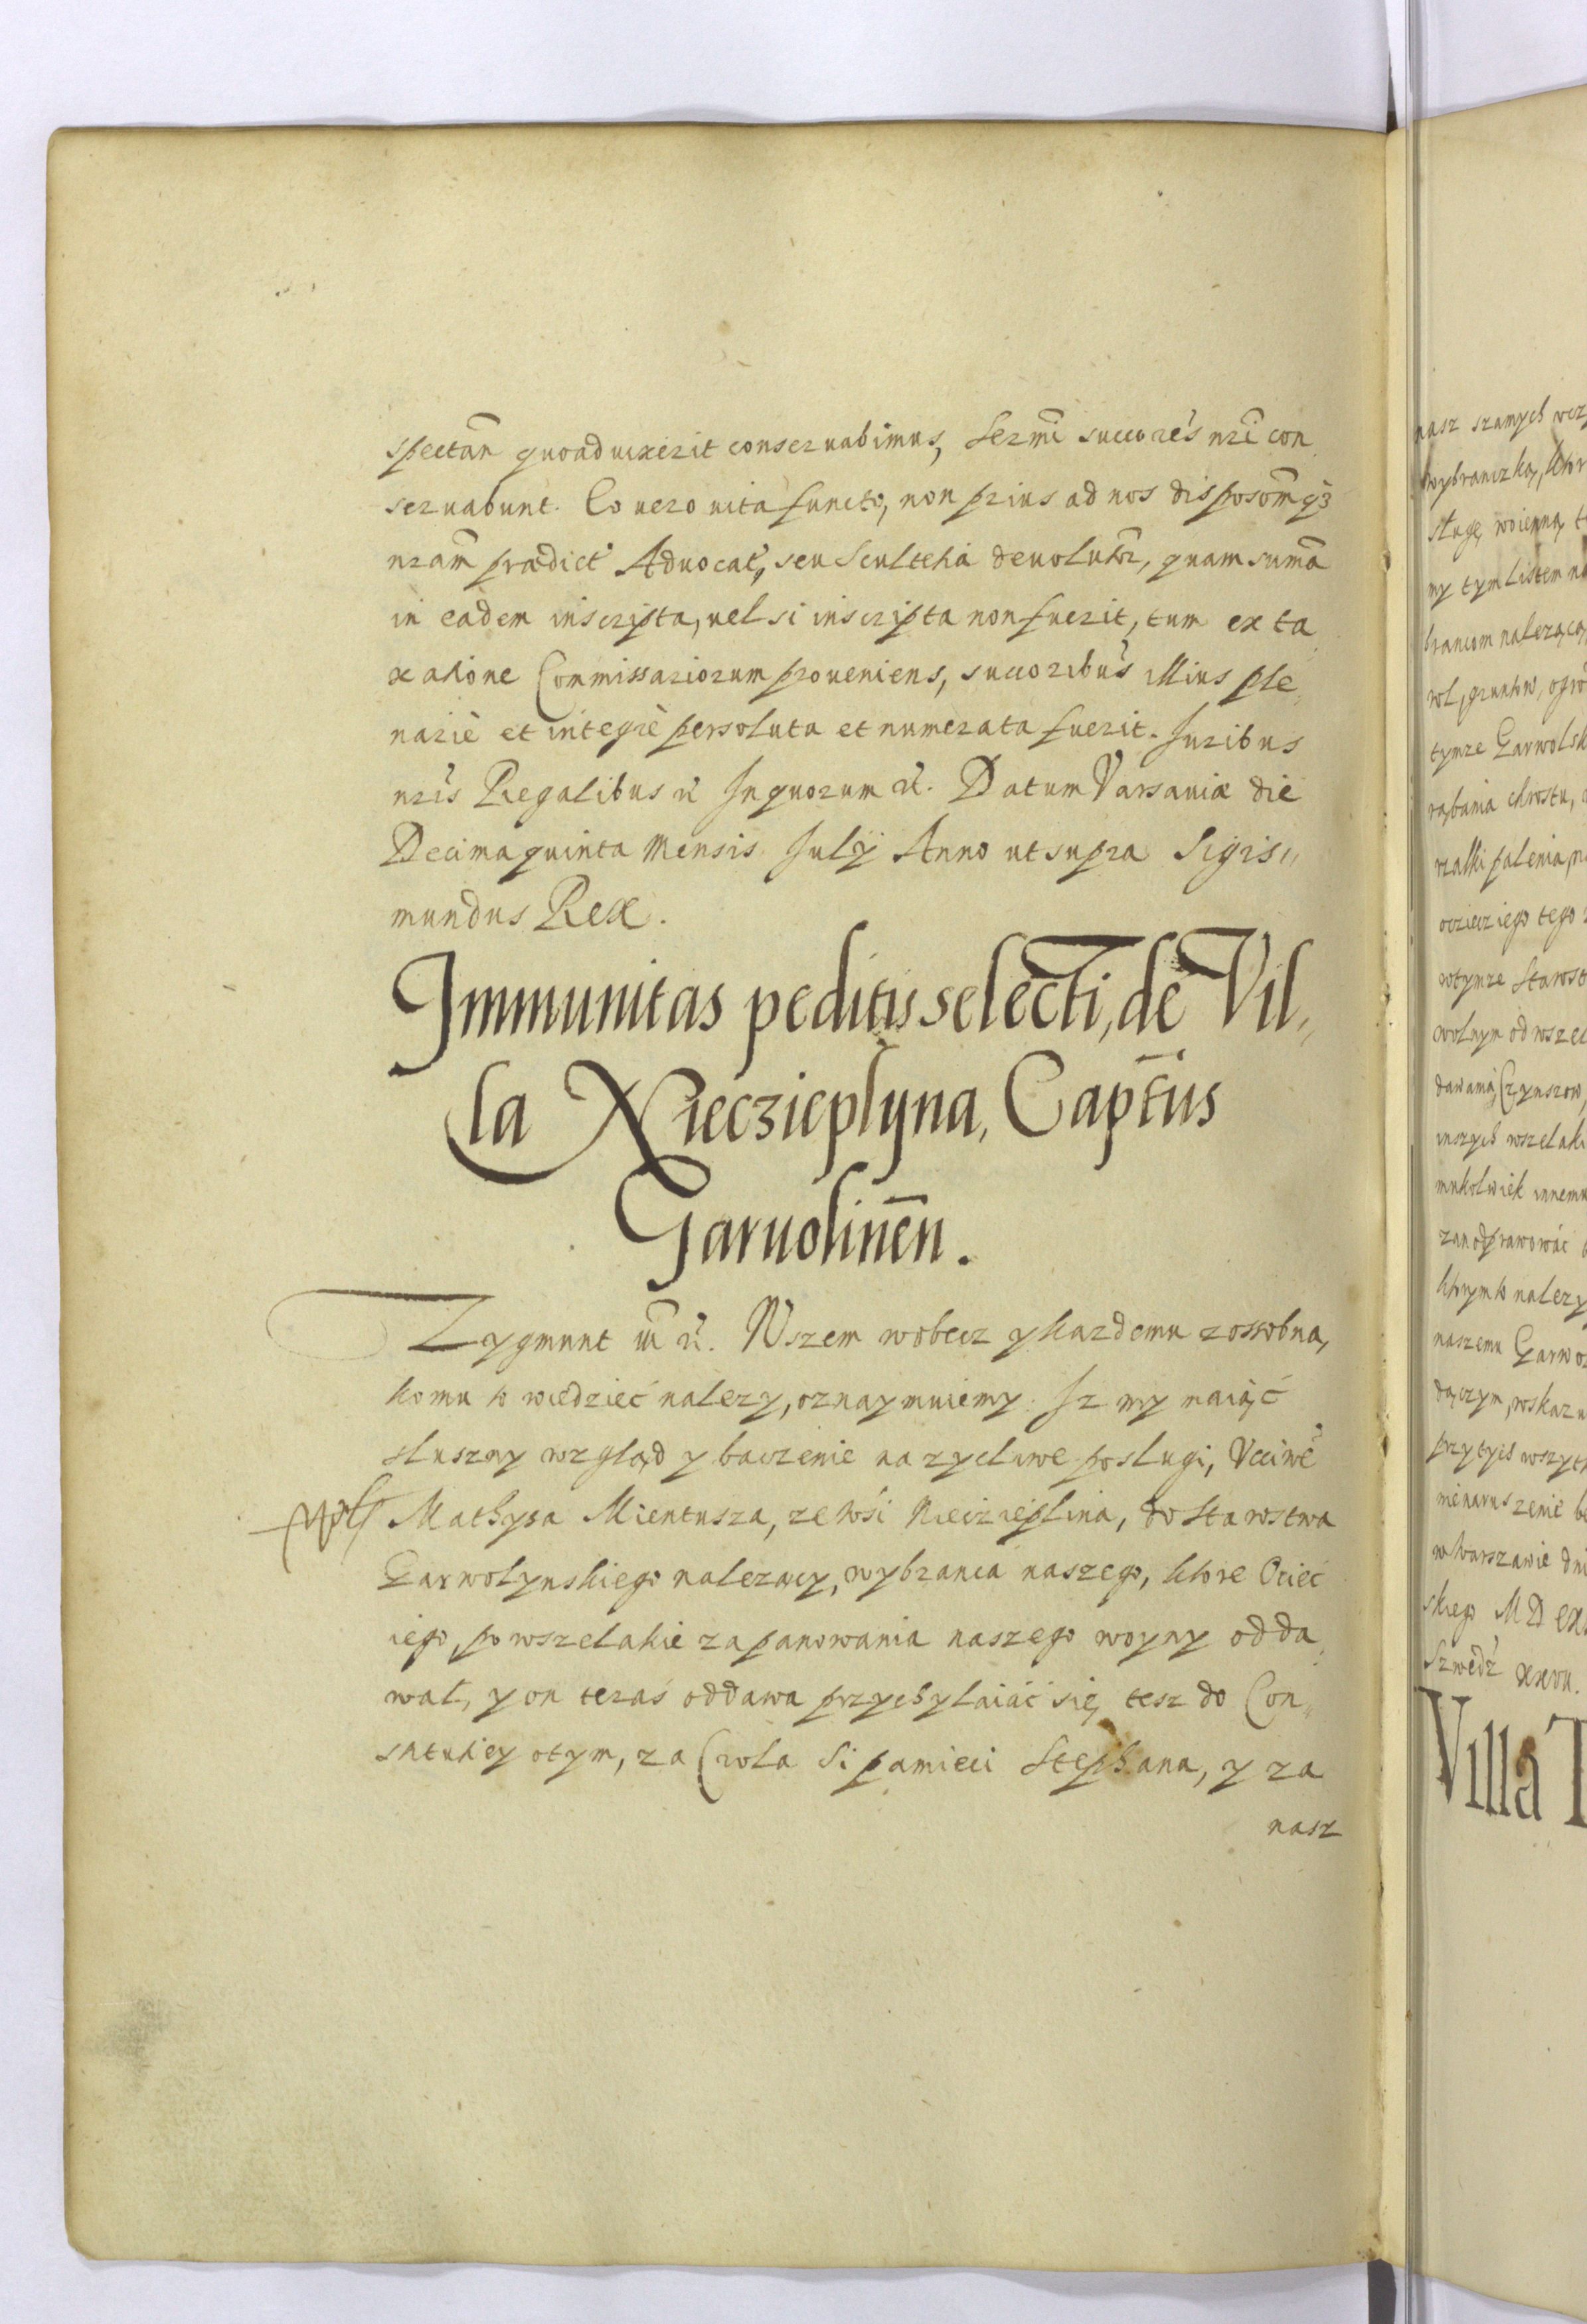 spectañ quoad uixerit conseruabimus, Sermi succores nri con
seruabunt. Eo uero uita functo, non prius ad nos disposomq3
nram praedict Aduocat, seu Scultetia deuolutr, quam sum̃a
in eadem inscripta, uel si inscripta non fuerit, tum ex ta
xatione Commissariorum proueniens, succoribus illius ple
narie et integre persoluta et numerata fuerit. Iuribus
nris Regalibus Inquorum Datum Varsauiae die
Decima quinta Mensis Iulij Anno ut supra Sigis„
mundus Rex.
Immunitas peditis selecti, de Vil„
la Niecziepłyna, Captus
Garuolineñ.
Zygmunt Wszem wobecz y kazdemu zossobna,
komu to wiedzieć nalezy, oznaymuiemy: Iz my maiąć
słuszny wzgląd y baczenie na zycliwe posługi, Vcciwe
Mathysa Mientusza, ze wsi Niecziepłina, do Starostwa
Garwolynskiego nalezący, wybranca naszego, ktore Ociec
iego, po wszelakie zapanowania naszego woyny odda
wał, y on teraś oddawa przychylaiąć się tesz do Con„
stitutiey otym, za Crola S pamieci Stephana, y za
nasz
nasz szamych
wybranczka,
sługę woienną
my tym Listem
brancom nalezącą
tymze Garwolsk
tego
wtymze Starost
wolnym od wszec
inszych wszelaki
innemu
nalezy
naszemu Garwo
przy tych wszytk
w Warszawie dni
skiego M D
Szwedz xxvii.
Villa T